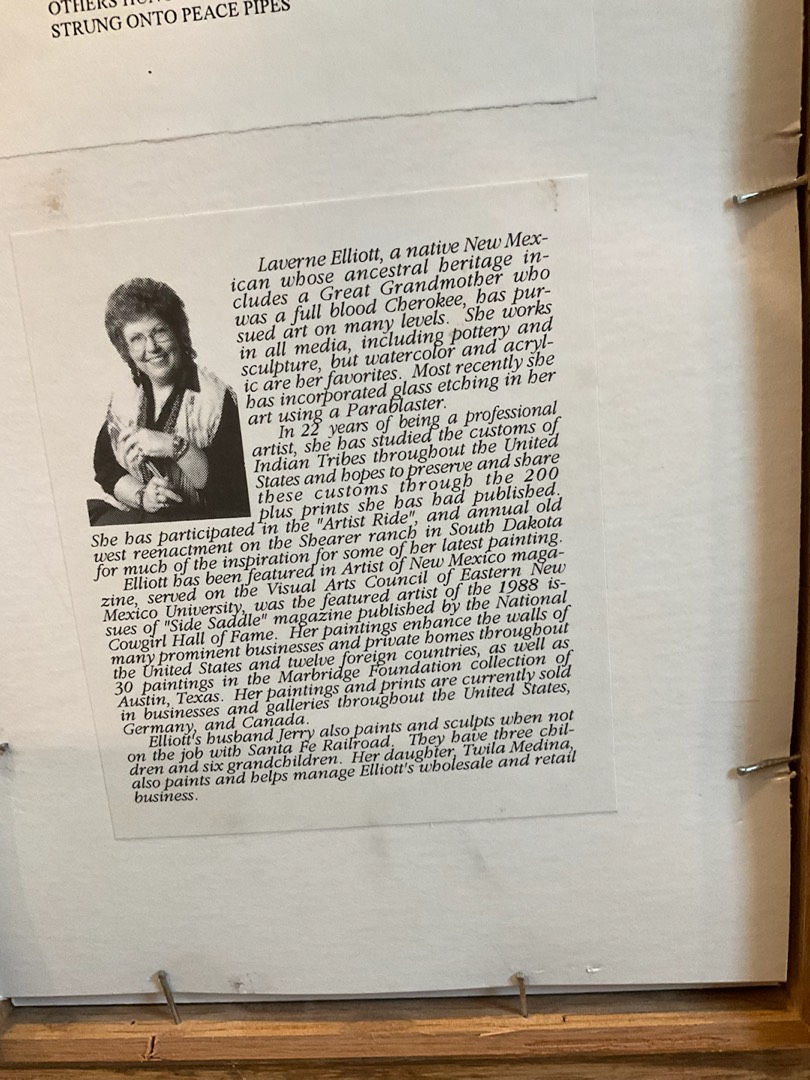 OTHERS
STRUNG ONTO PEACE PIPES
Laverne Elliott, a native New Mex-
ican whose ancestral heritage in-
cludes a Great Grandmother who
was a full blood Cherokee, has pur-
sued art on many levels. She works
in all media, including pottery and
sculpture, but watercolor and acryl-
ic are her favorites. Most recently she
has incorporated glass etching in her
art using a Parablaster.
In 22 years of being a professional
artist, she has studied the customs of
Indian Tribes throughout the United
States and hopes to preserve and share
these customs through the 200
plus prints she has had published.
She has participated in the "Artist Ride", and annual old
west reenactment on the Shearer ranch in South Dakota
for much of the inspiration for some of her latest painting.
Elliott has been featured in Artist of New Mexico maga-
zine, served on the Visual Arts Council of Eastern New
Mexico University, was the featured artist of the 1988 is-
sues of "Side Saddle" magazine published by the National
Cowgirl Hall of Fame. Her paintings enhance the walls of
many prominent businesses and private homes throughout
the United States and twelve foreign countries, as well as
30 paintings in the Marbridge Foundation collection of
Austin, Texas. Her paintings and prints are currently sold
in businesses and galleries throughout the United States,
Germany, and Canada.
Elliott's husband Jerry also paints and sculpts when not
on the job with Santa Fe Railroad. They have three chil-
dren and six grandchildren. Her daughter, Twila Medina,
also paints and helps manage Elliott's wholesale and retail
business.